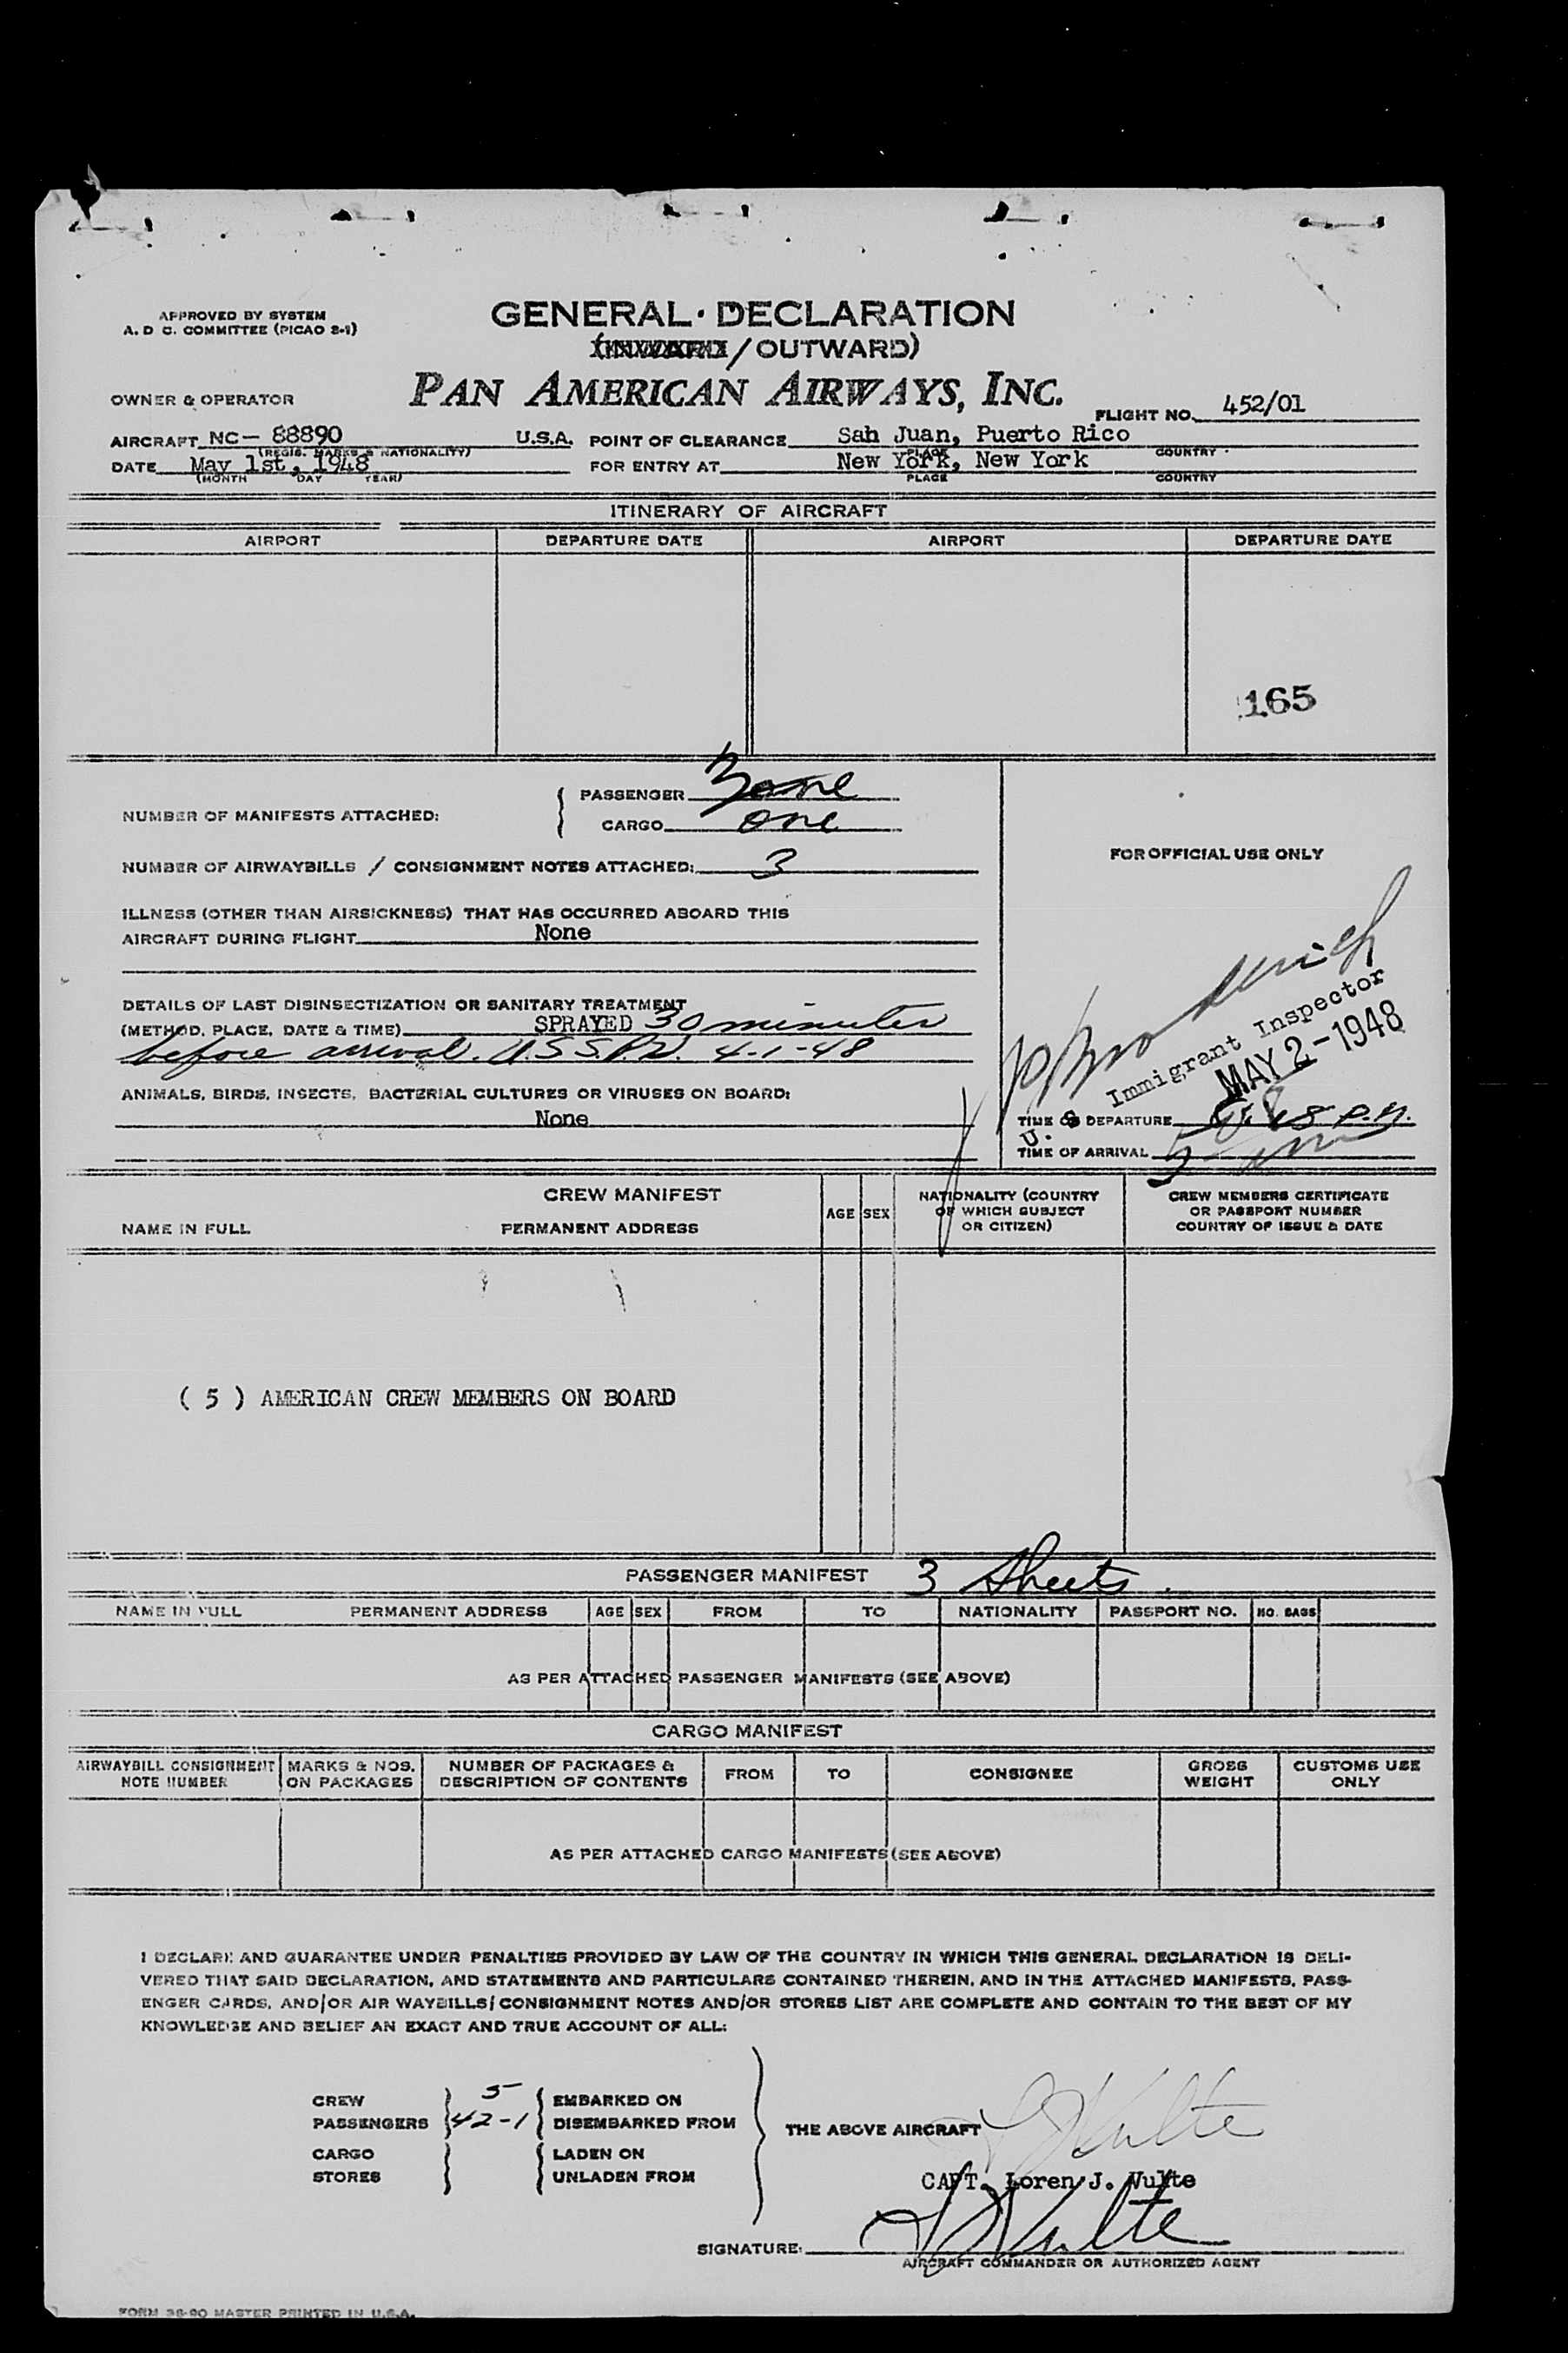 APPROVED BY SYSTEM
A. D C. COMMITTEE (PICAO 2-1)
GENERAL · DECLARATION
(INWARD / OUTWARD)
OWNER & OPERATOR
PAN AMERICAN AIRWAYS, INC.
FLIGHT NO. 452/01
AIRCRAFT NC- 88890 U.S.A. POINT OF CLEARANCE Sah Juan, Puerto Rico
(REGIS. MARKS & NATIONALITY) PLACE COUNTRY
DATE May 1st, 1948 FOR ENTRY AT New York, New York
(MONTH DAY YEAR) PLACE COUNTRY
ITINERARY OF AIRCRAFT
AIRPORT DEPARTURE DATE AIRPORT DEPARTURE DATE
165
NUMBER OF MANIFESTS ATTACHED: PASSENGER 3
CARGO one
FOR OFFICIAL USE ONLY
NUMBER OF AIRWAYBILLS / CONSIGNMENT NOTES ATTACHED: 3
ILLNESS (OTHER THAN AIRSICKNESS) THAT HAS OCCURRED ABOARD THIS
AIRCRAFT DURING FLIGHT None
DETAILS OF LAST DISINSECTIZATION OR SANITARY TREATMENT
(METHOD, PLACE, DATE & TIME) SPRAYED 30 minutes
before arrival. 4-1-48
U. S Immigrant Inspector
MAY 2-1948
ANIMALS, BIRDS, INSECTS, BACTERIAL CULTURES OR VIRUSES ON BOARD:
None
TIME OF DEPARTURE P.M.
TIME OF ARRIVAL
CREW MANIFEST
NAME IN FULL PERMANENT ADDRESS AGE SEX NATIONALITY (COUNTRY OF WHICH SUBJECT OR CITIZEN) CREW MEMBERS CERTIFICATE OR PASSPORT NUMBER COUNTRY OF ISSUE & DATE
( 5 ) AMERICAN CREW MEMBERS ON BOARD
PASSENGER MANIFEST 3 Sheets.
NAME IN FULL PERMANENT ADDRESS AGE SEX FROM TO NATIONALITY PASSPORT NO. NO. BAGS
AS PER ATTACHED PASSENGER MANIFESTS (SEE ABOVE)
CARGO MANIFEST
AIRWAYBILL CONSIGNMENT NOTE NUMBER MARKS & NOS. ON PACKAGES NUMBER OF PACKAGES & DESCRIPTION OF CONTENTS FROM TO CONSIGNEE GROSS WEIGHT CUSTOMS USE ONLY
AS PER ATTACHED CARGO MANIFESTS (SEE ABOVE)
I DECLARE AND GUARANTEE UNDER PENALTIES PROVIDED BY LAW OF THE COUNTRY IN WHICH THIS GENERAL DECLARATION IS DELI-
VERED THAT SAID DECLARATION, AND STATEMENTS AND PARTICULARS CONTAINED THEREIN, AND IN THE ATTACHED MANIFESTS, PASS-
ENGER CARDS, AND/OR AIR WAYBILLS/CONSIGNMENT NOTES AND/OR STORES LIST ARE COMPLETE AND CONTAIN TO THE BEST OF MY
KNOWLEDGE AND BELIEF AN EXACT AND TRUE ACCOUNT OF ALL:
CREW 5 EMBARKED ON
PASSENGERS 42-1 DISEMBARKED FROM
THE ABOVE AIRCRAFT L J Vulte
CARGO LADEN ON
STORES UNLADEN FROM
CAPT. Loren J. Vulte
SIGNATURE: L J Vulte
AIRCRAFT COMMANDER OR AUTHORIZED AGENT
FORM 38-90 MASTER PRINTED IN U.S.A.